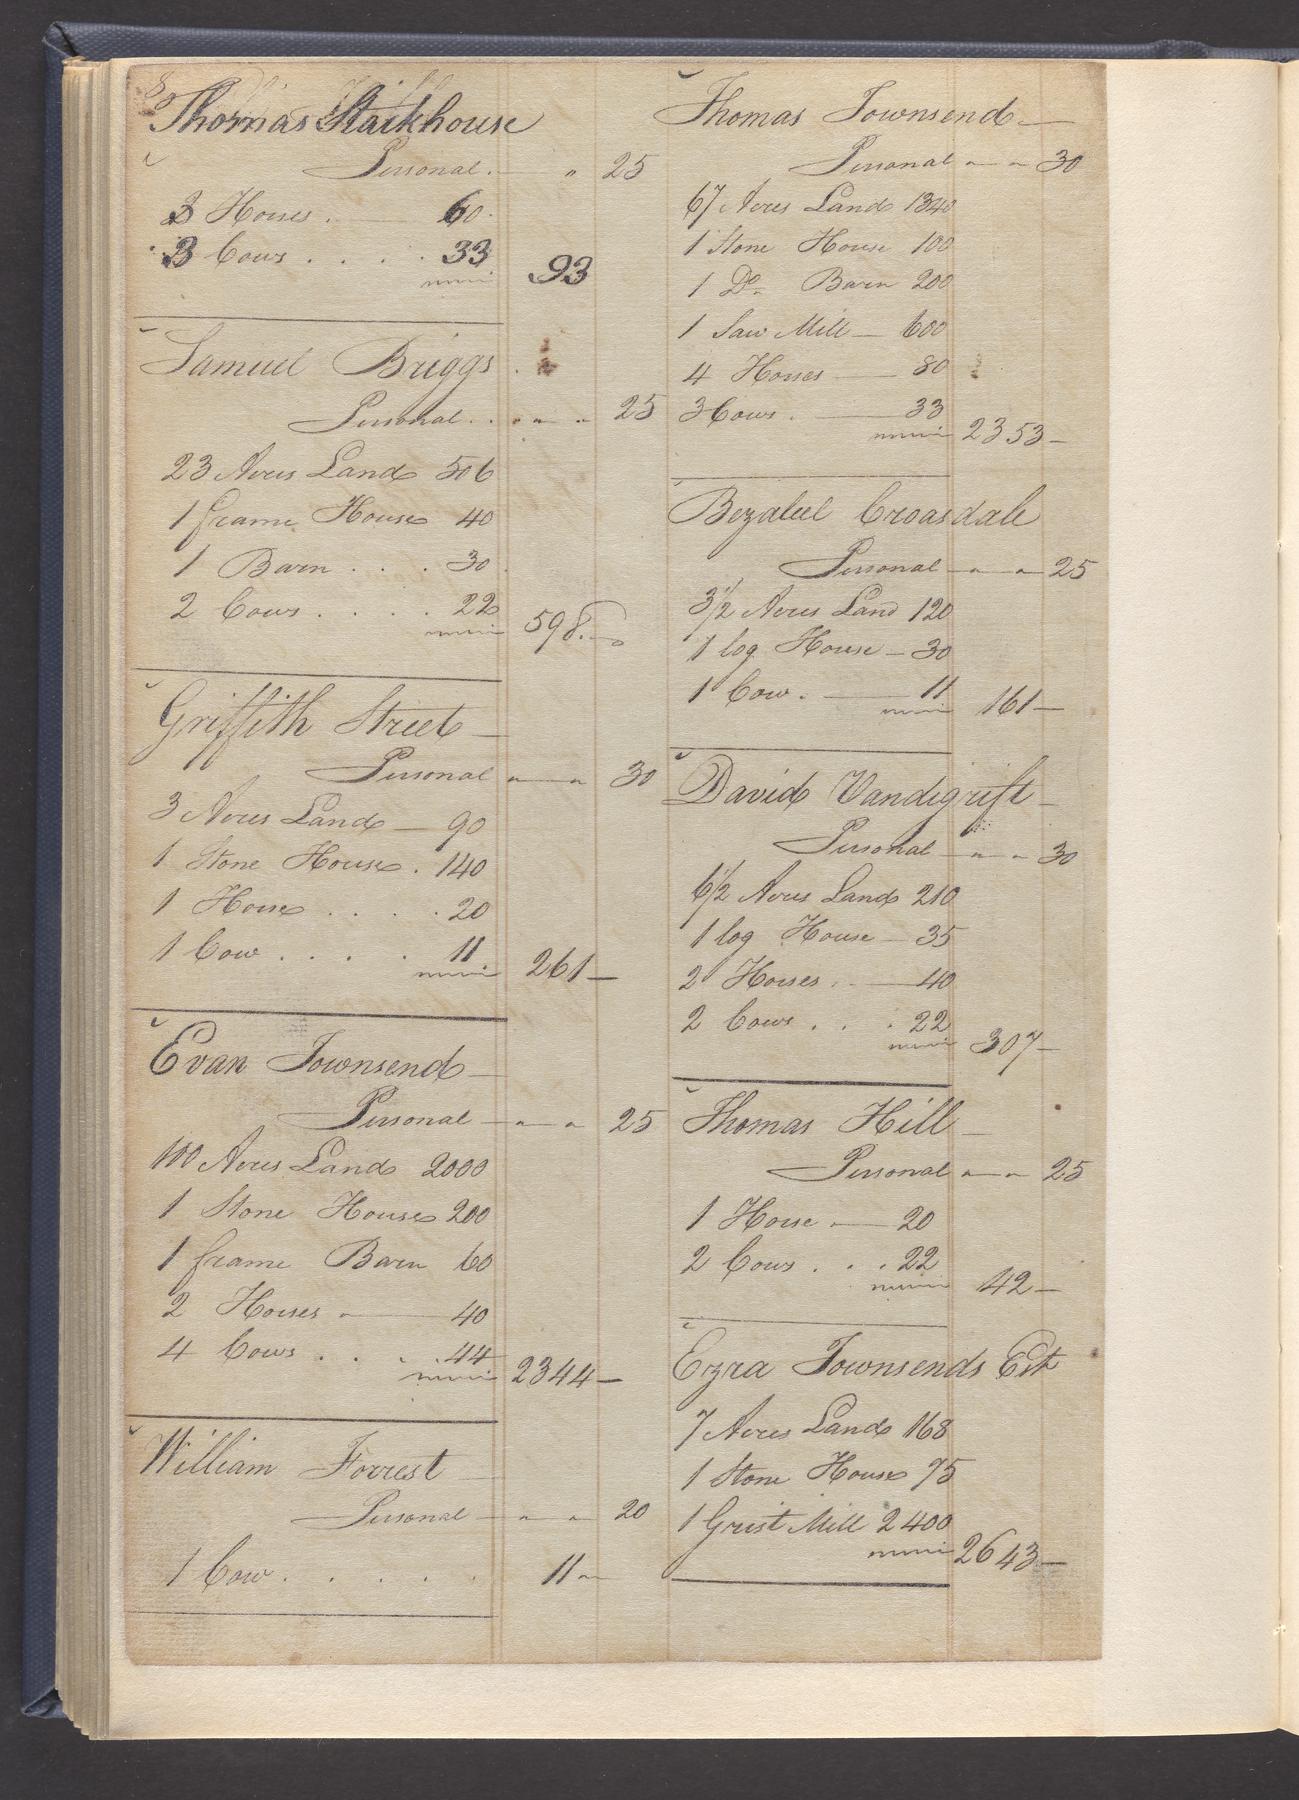 8
Thomas Stackhouse
Personal . — " 25
3 Horses . — 60
3 Cows . . . . 33
93
Samuel Briggs
Personal . . " — " 25
23 Acres Land 506
1 frame House 40
1 Barn . . . 30
2 Cows . . . . 22
598.—
Griffith Street —
Personal " — " 30
3 Acres Land — 90
1 Stone House . 140
1 Horse . . . . 20
1 Cow . . . . 11
261 —
Evan Townsend —
Personal — " — " 25
100 Acres Land 2000
1 Stone House 200
1 frame Barn 60
2 Horses — 40
4 Cows . . . . 44
2344 —
William Forrest —
Personal — " — " 20
1 Cow . . . . . 11 —
Thomas Townsend —
Personal " — " 30
67 Acres Land 1340
1 Stone House 100
1 Do. Barn 200
1 Saw Mill — 600
4 Horses — 80
3 Cows . — 33
2353 —
Bezaleel Croasdale
Personal — " — " — 25
3 1/2 Acres Land 120
1 log House — 30
1 Cow . — 11
161 —
David Vandegrift —
Personal — " — " 30
6 1/2 Acres Land 210
1 log House — 35
2 Horses . — 40
2 Cows . . . 22
307 —
Thomas Hill —
Personal " — " 25
1 Horse — 20
2 Cows . . . 22
42 —
Ezra Townsends Est
7 Acres Land 168
1 Stone House 75
1 Grist Mill 2400
2643 —